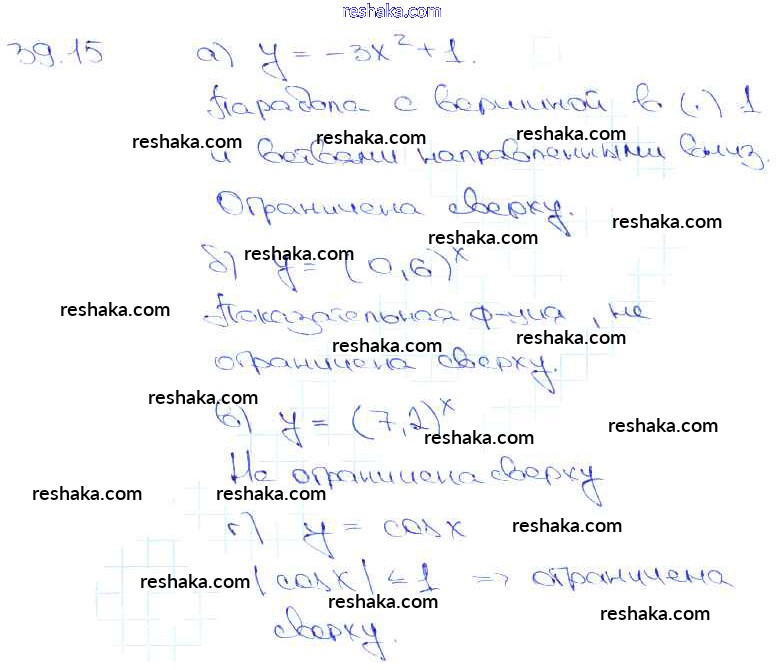 reshaka.com
39.15 а) y = -3x² + 1.
Парабола с вершиной в (.) 1
reshaka.com reshaka.com reshaka.com
и ветвями направленными вниз.
Ограничена сверху.
reshaka.com
reshaka.com reshaka.com
б) y = (0,6)^x
reshaka.com
Показательная ф-ция, не
reshaka.com reshaka.com
ограничена сверху.
reshaka.com
в) y = (7,2)^x
reshaka.com reshaka.com
Не ограничена сверху
reshaka.com reshaka.com
г) y = cosx reshaka.com
|cosx| ≤ 1 => ограничена
reshaka.com reshaka.com reshaka.com
сверху.